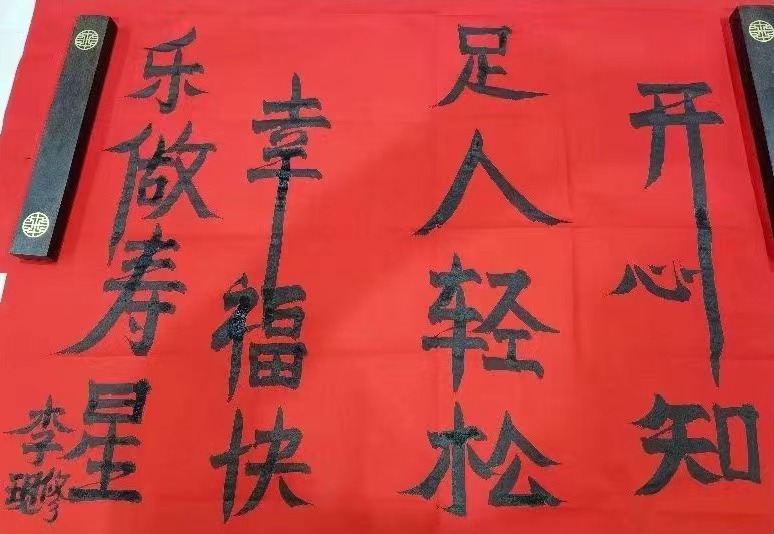 开心知
足人轻松
幸福快
乐做寿星
李